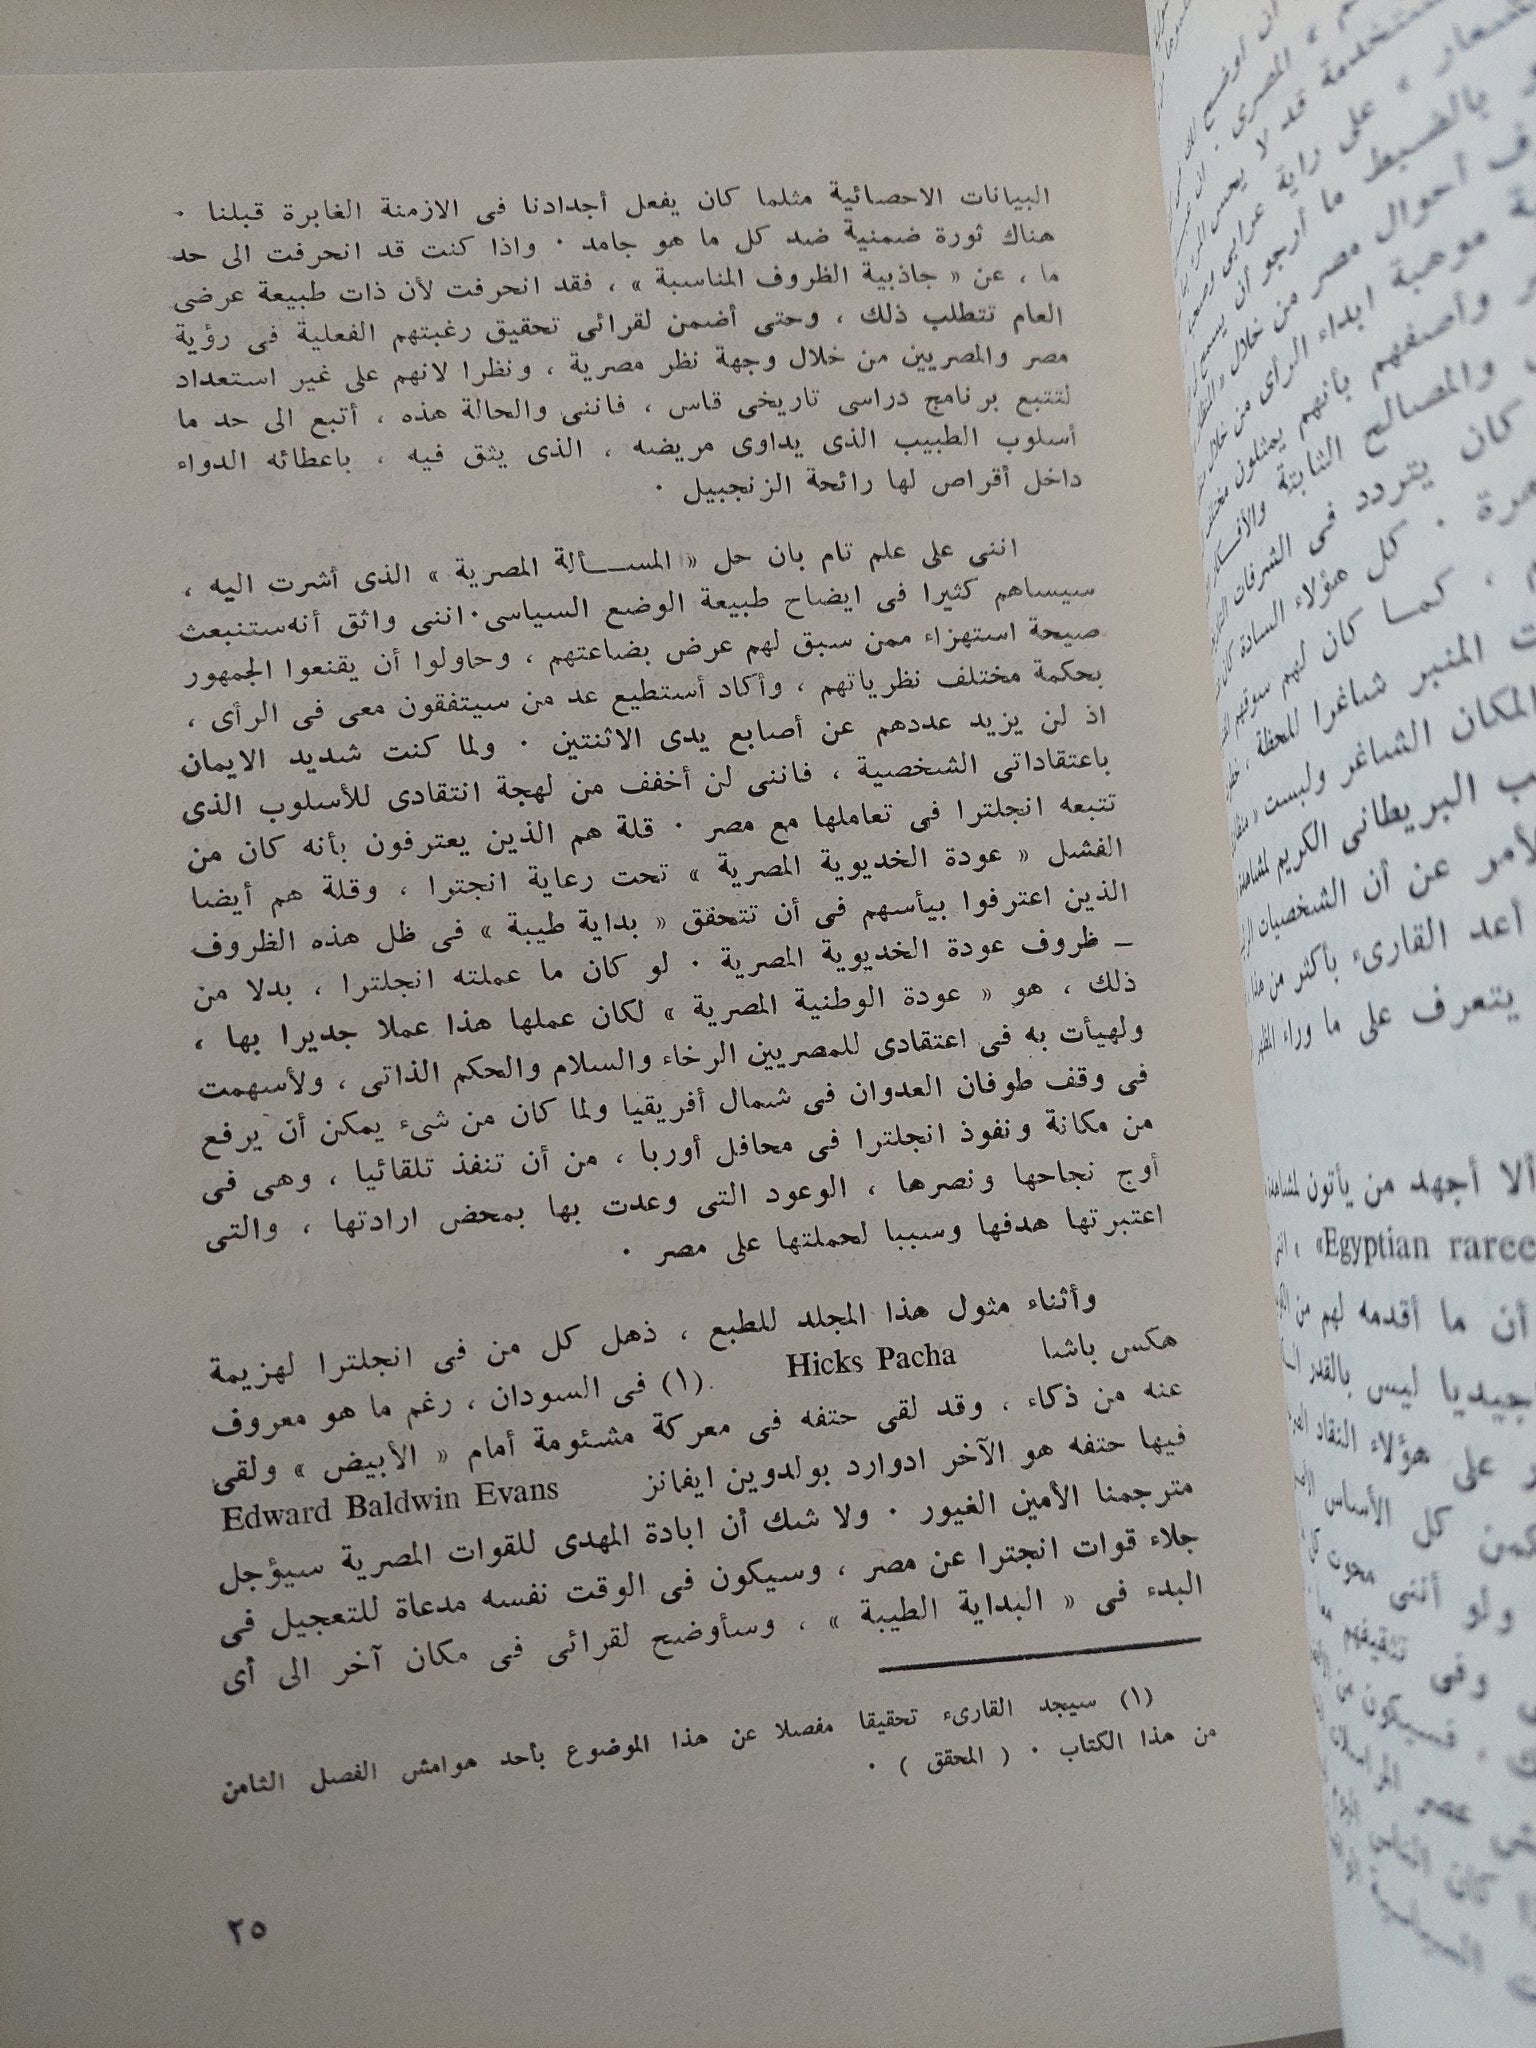 البيانات الاحصائية مثلما كان يفعل أجدادنا فى الازمنة الغابرة قبلنا ·
هناك ثورة ضمنية ضد كل ما هو جامد · واذا كنت قد انحرفت الى حد
ما ، عن « جاذبية الظروف المناسبة » ، فقد انحرفت لأن ذات طبيعة عرضى
العام تتطلب ذلك ، وحتى أضمن لقرائى تحقيق رغبتهم الفعلية فى رؤية
مصر والمصريين من خلال وجهة نظر مصرية ، ونظرا لانهم على غير استعداد
لتتبع برنامج دراسى تاريخى قاس ، فاننى والحالة هذه ، أتبع الى حد ما
أسلوب الطبيب الذى يداوى مريضه ، الذى يثق فيه ، باعطائه الدواء
داخل أقراص لها رائحة الزنجبيل ·
اننى على علم تام بان حل « المســألة المصرية » الذى أشرت اليه ،
سيساهم كثيرا فى ايضاح طبيعة الوضع السياسى· اننى واثق أنه ستنبعث
صيحة استهزاء ممن سبق لهم عرض بضاعتهم ، وحاولوا أن يقنعوا الجمهور
بحكمة مختلف نظرياتهم ، وأكاد أستطيع عد من سيتفقون معى فى الرأى ،
اذ لن يزيد عددهم عن أصابع يدى الاثنتين · ولما كنت شديد الايمان
باعتقاداتى الشخصية ، فاننى لن أخفف من لهجة انتقادى للأسلوب الذى
تتبعه انجلترا فى تعاملها مع مصر · قلة هم الذين يعترفون بأنه كان من
الفشل « عودة الخديوية المصرية » تحت رعاية انجترا ، وقلة هم أيضا
الذين اعترفوا بيأسهم فى أن تتحقق « بداية طيبة » فى ظل هذه الظروف
– ظروف عودة الخديوية المصرية · لو كان ما عملته انجلترا ، بدلا من
ذلك ، هو « عودة الوطنية المصرية » لكان عملها هذا عملا جديرا بها ،
ولهيأت به فى اعتقادى للمصريين الرخاء والسلام والحكم الذاتى ، ولأسهمت
فى وقف طوفان العدوان فى شمال أفريقيا ولما كان من شىء يمكن أن يرفع
من مكانة ونفوذ انجلترا فى محافل أوربا ، من أن تنفذ تلقائيا ، وهى فى
أوج نجاحها ونصرها ، الوعود التى وعدت بها بمحض ارادتها ، والتى
اعتبرتها هدفها وسببا لحملتها على مصر ·
وأثناء مثول هذا المجلد للطبع ، ذهل كل من فى انجلترا لهزيمة
هكس باشا Hicks Pacha (١) فى السودان ، رغم ما هو معروف
عنه من ذكاء ، وقد لقى حتفه فى معركة مشئومة أمام « الأبيض » ولقى
فيها حتفه هو الآخر ادوارد بولدوين ايفانز Edward Baldwin Evans
مترجمنا الأمين الغيور · ولا شك أن ابادة المهدى للقوات المصرية سيؤجل
جلاء قوات انجترا عن مصر ، وسيكون فى الوقت نفسه مدعاة للتعجيل فى
البدء فى « البداية الطيبة » ، وسأوضح لقرائى فى مكان آخر الى أى
(١) سيجد القارىء تحقيقا مفصلا عن هذا الموضوع بأحد هوامش الفصل الثامن
من هذا الكتاب · ( المحقق ) ·
٢٥
المصرى
على راية عرابى
بالضبط ما أرجو أن
أحوال مصر من خلال
موهبة ابداء الرأى من خلال
وأصفهم بأنهم يمثلون مختلف
والمصالح الثابتة
كان يتردد فى الشرفات
كل هؤلاء السادة
كمـا كان لهم
المنبر شاغرا للحظة ،
المكان الشاغر ولبست
البريطانى الكريم
عن أن الشخصيات
أعد القارىء بأكثر من هذا
يتعرف على ما وراء
ألا أجهد من يأتون
Egyptian raree
أن ما أقدمه لهم من
ليس بالقدر
على هؤلاء النقاد
كل الأساس
ولو أننى